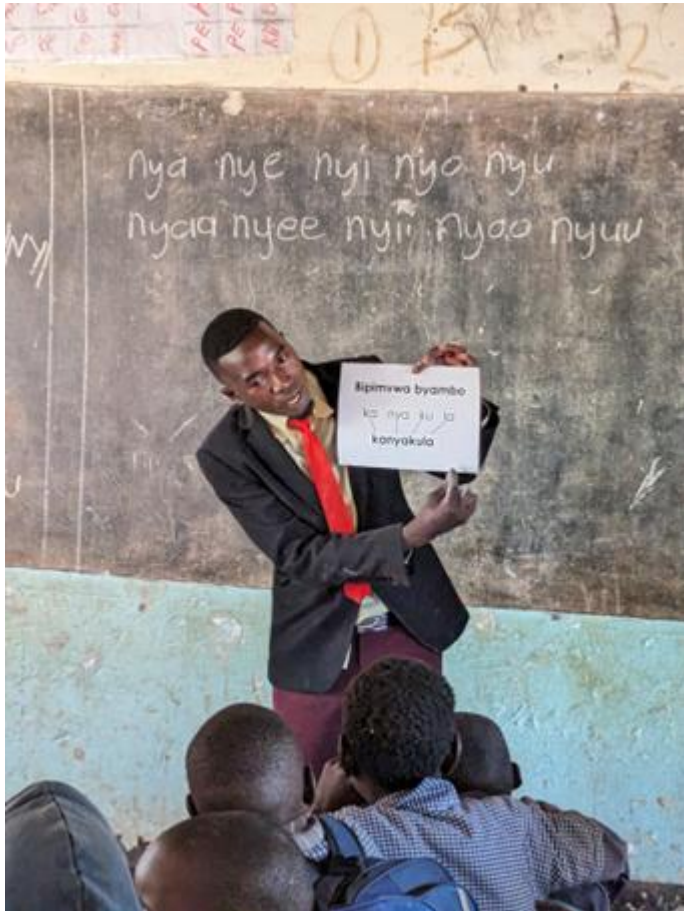 1
2
nya nye nyi nyo nyu
nyaa nyee nyii nyoo nyuu
ny
Bipimvwa byambo
ka nya ku la
kanyakula